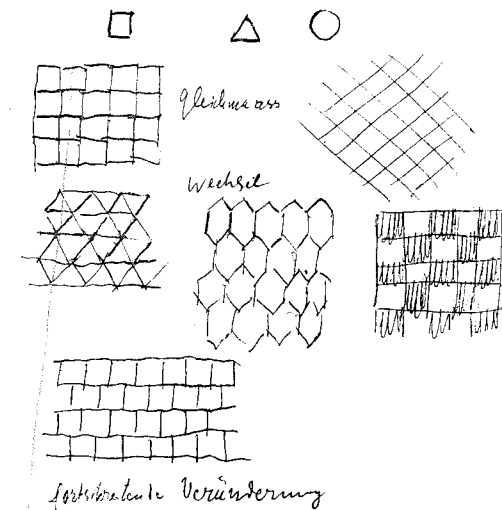 gleichmaass
Wechsel
fortschreitende Veränderung